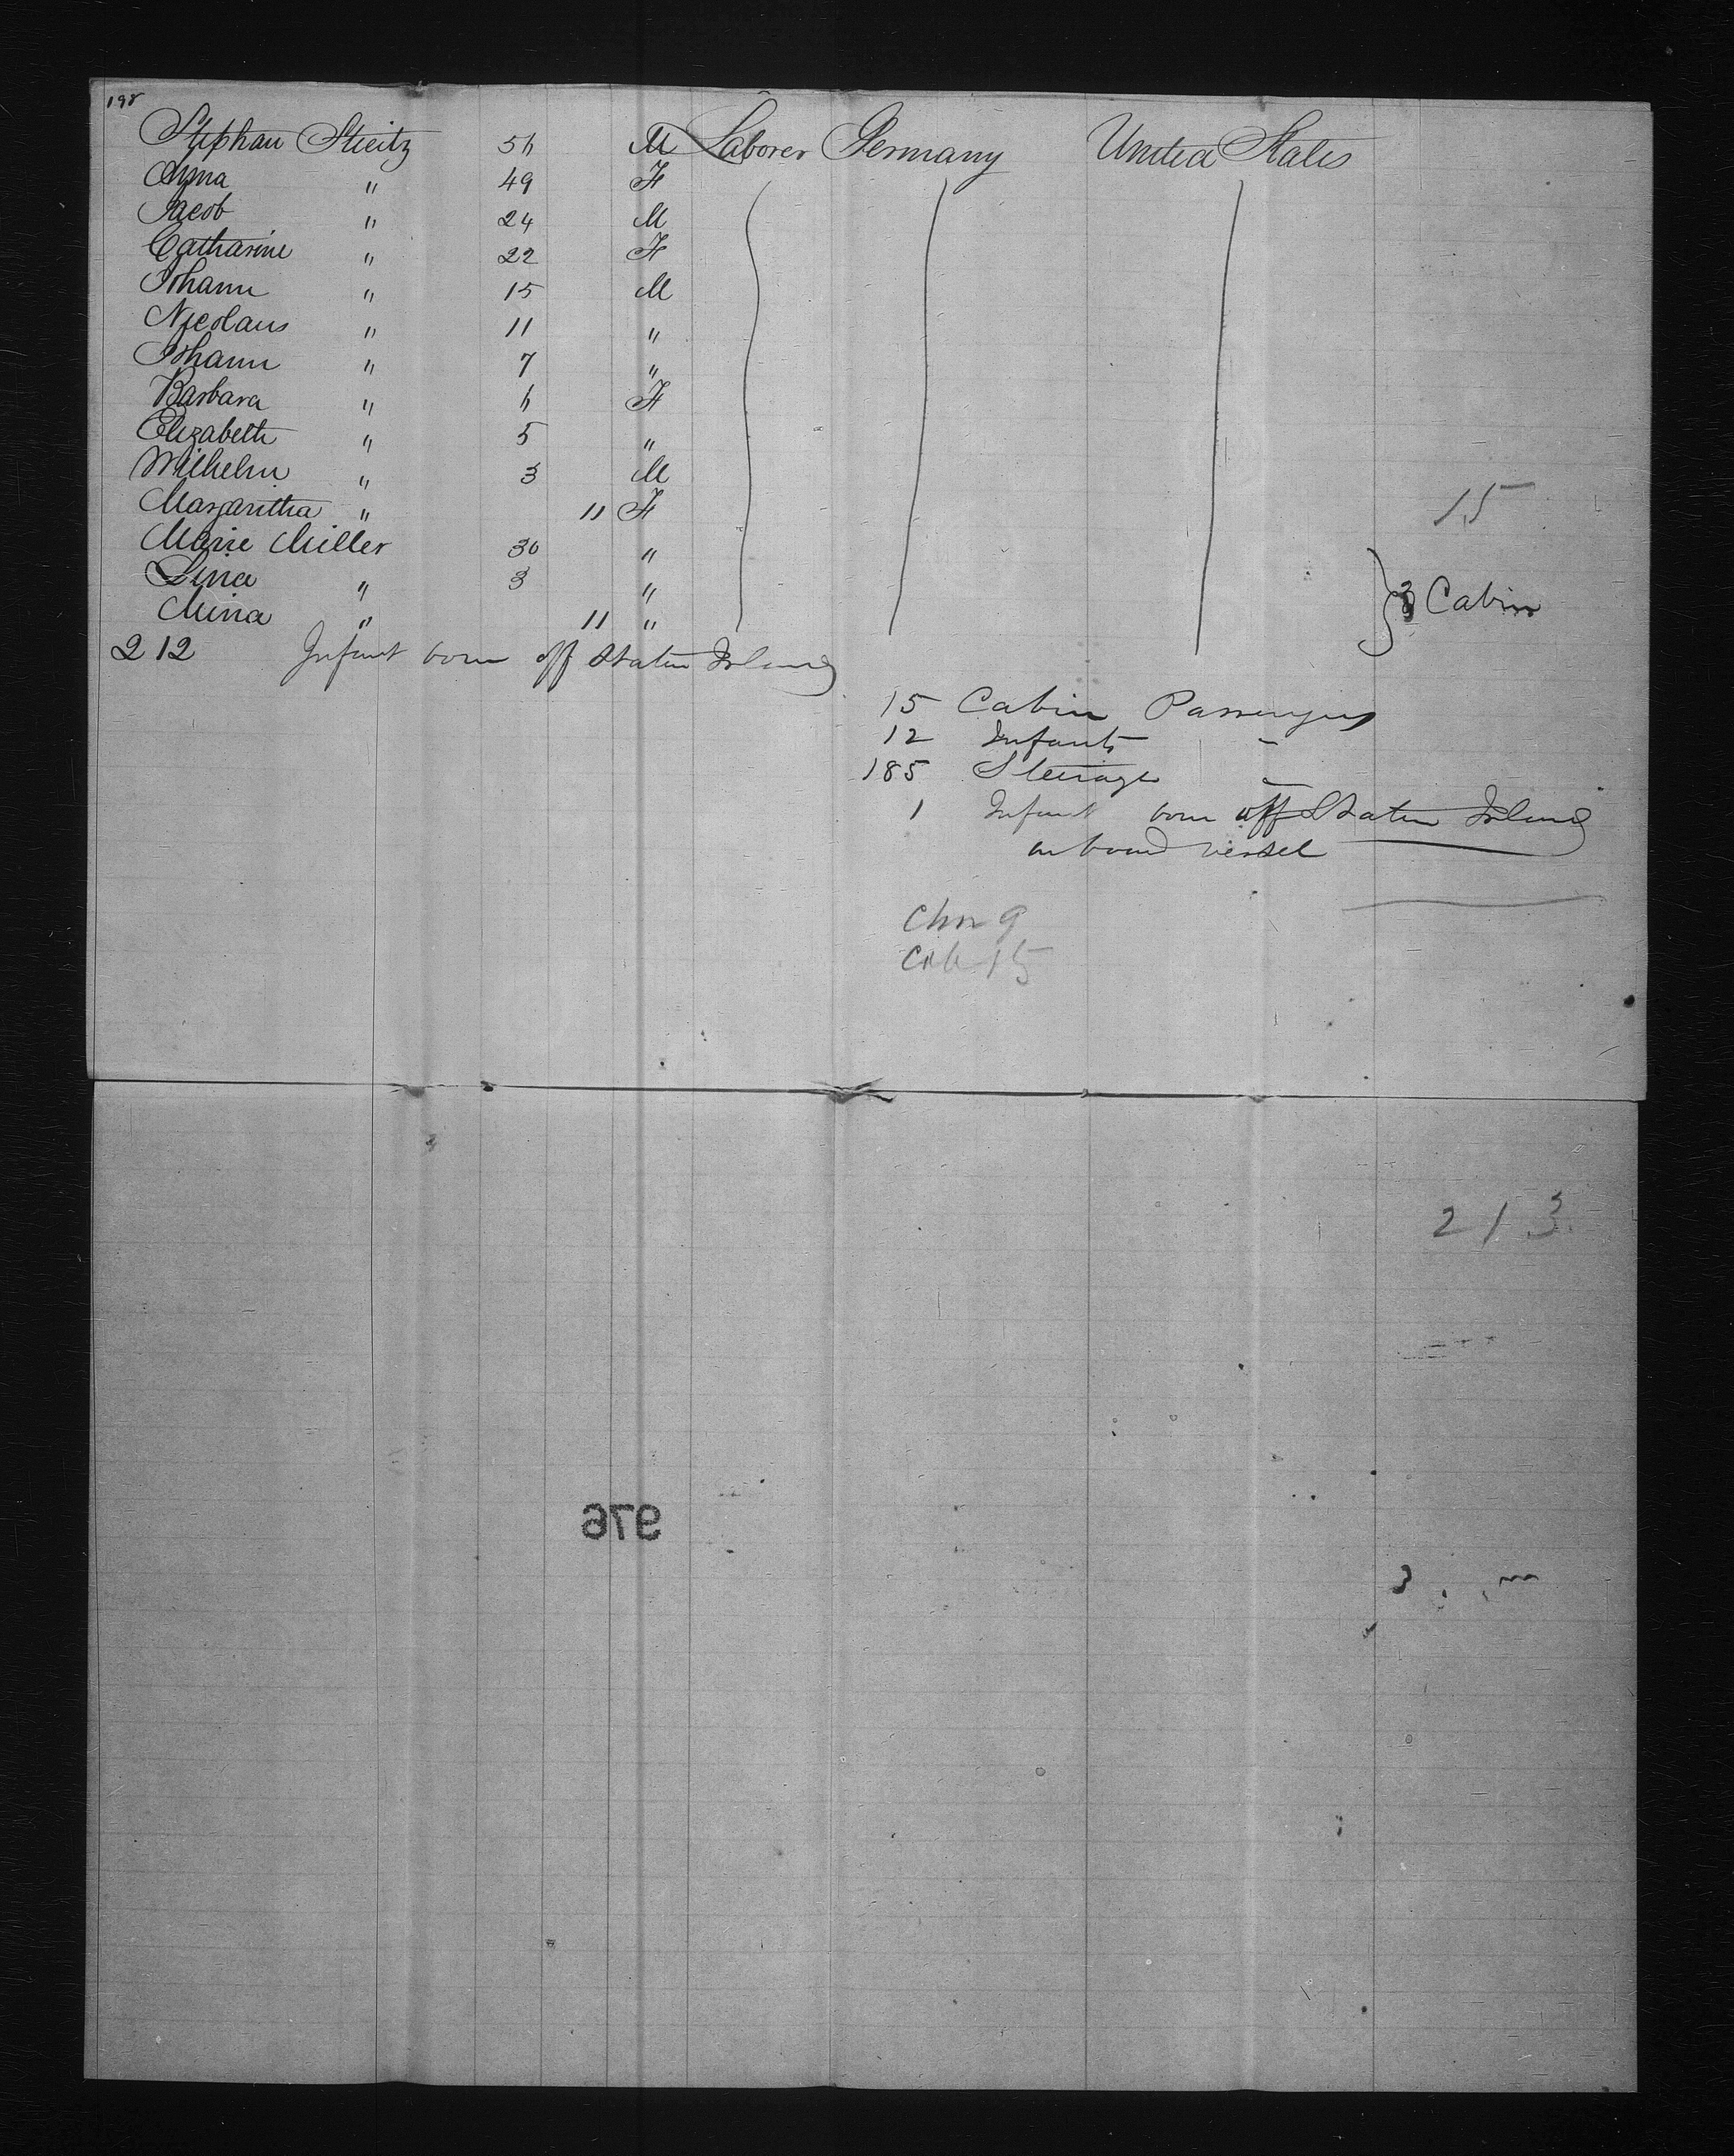 198
Stephan Stieitz 56 M Laborer Germany United States
Anna " 49 F
Jacob " 24 M
Catharine " 22 F
Johann " 15 M
Nicolaus " 11 "
Johann " 7 "
Barbara " 6 F
Elizabeth " 5 "
Wilhelm " 3 M
Margaritha " 11 F
15
Marie Miller 30 "
Lina " 3 "
3 Cabin
Mina " 11 "
212 Infant born off Staten Island
15 Cabin Passengers
12 Infants "
185 Steerage "
1 Infant born off Staten Island
on board vessel
Chn 9
Cab 15
213
976